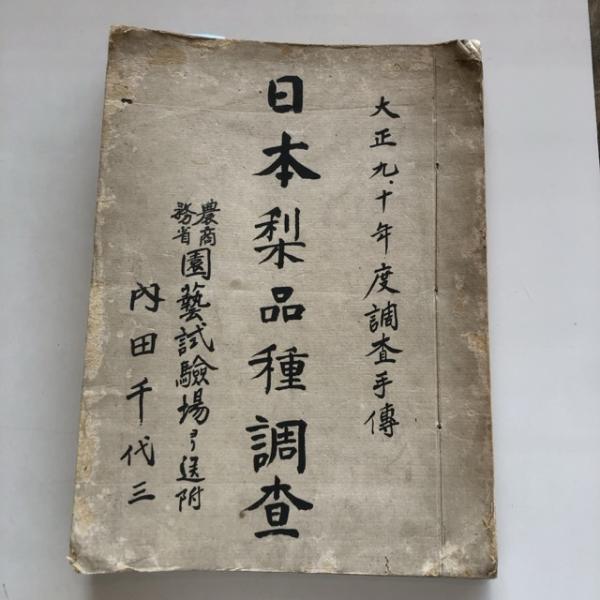 大正九、十年度調査手傳
日本梨品種調査
農商務省園藝試驗場ヨリ送附
内田千代三